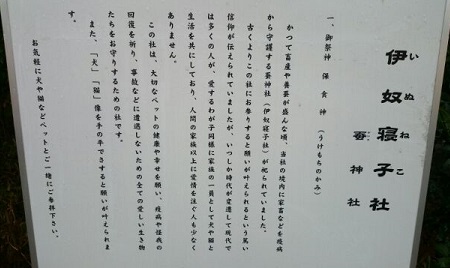 伊奴寝子社
いぬねこ
蚕神社
一、御祭神 保食神 (うけもちのかみ)
かつて畜産や養蚕が盛んな頃、当社の境内に家畜などを疫病
から守護する蚕神社(伊奴寝子社)が祀られていました。
古くよりこの社にお参りすると願いが叶えられるという篤い
信仰が伝えられていましたが、いつしか時代が変遷して現代で
は多くの人が、愛するわが子同様に家族の一員として犬や猫と
生活を共にしており、人間の家族以上に愛情を注ぐ人も少なく
ありません。
この社は、大切なペットの健康や幸せを願い、疫病や怪我の
回復を祈り、事故などに遭遇しないための全ての愛しい生き物
たちをお守りするための社です。
また、「犬」「猫」像を手の平でさすると願いが叶えられま
す。
お気軽に犬や猫などペットとご一緒にご参拝下さい。